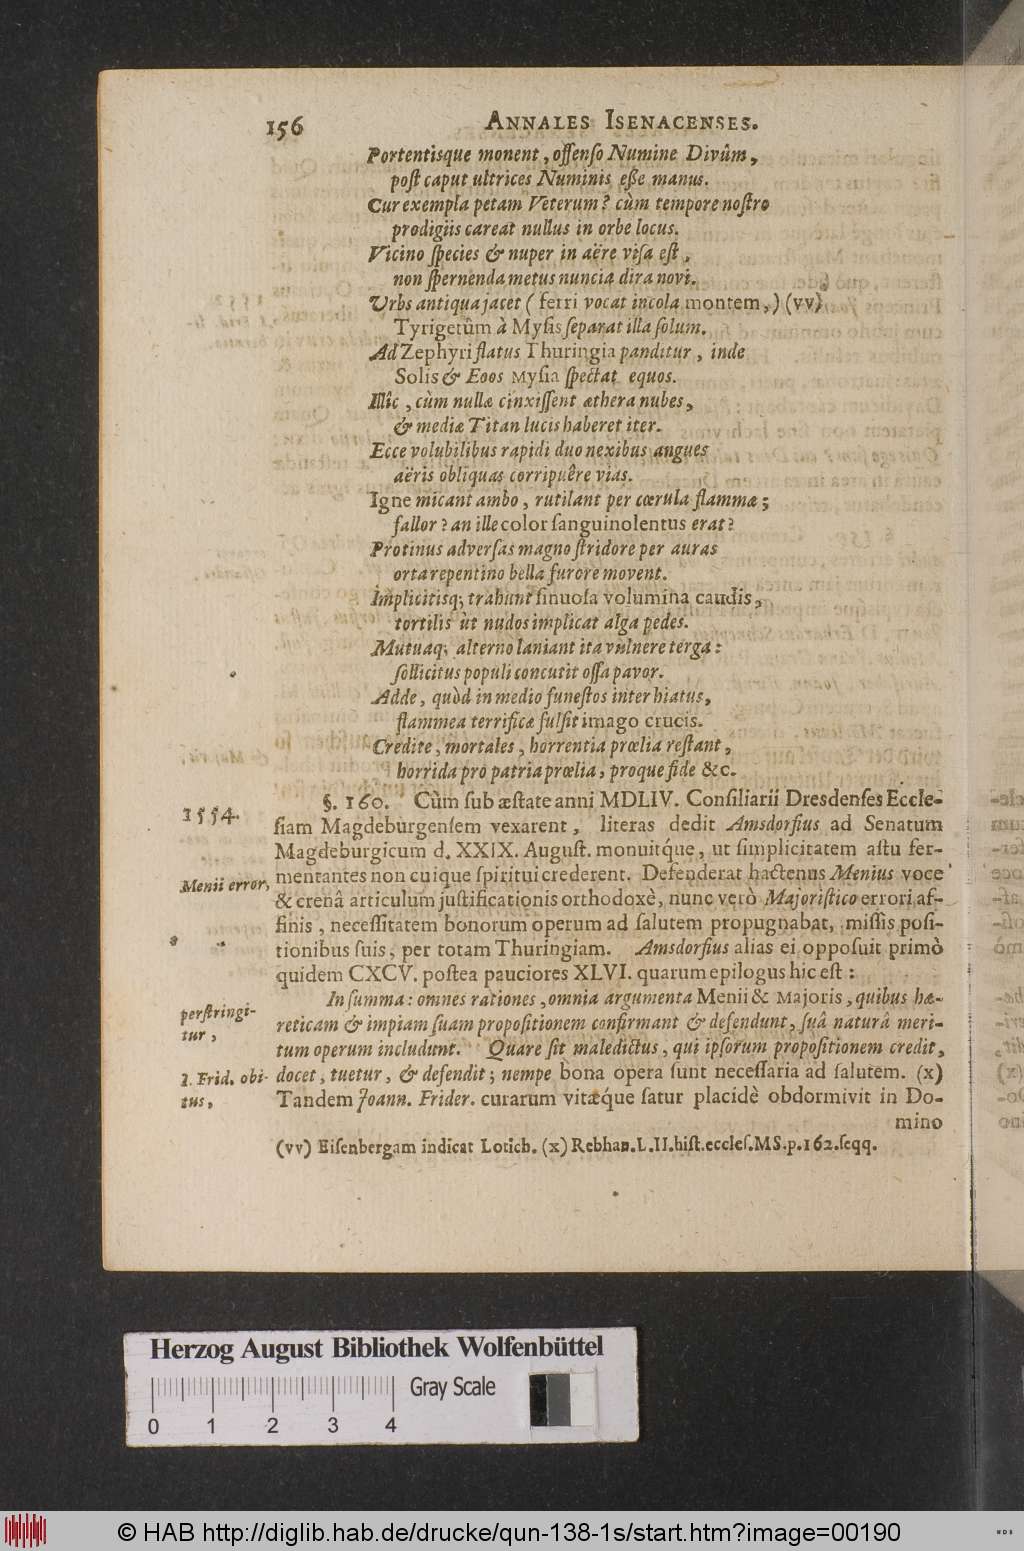 156 ANNALES ISENACENSES.
Portentisque monent, offenso Numine Divûm,
post caput ultrices Numinis eße manus.
Cur exempla petam Veterum? cùm tempore nostro
prodigiis careat nullus in orbe locus.
Vicino species & nuper in aëre visa est,
non spernenda metus nuncia dira novi.
Urbs antiqua jacet ( ferri vocat incola montem,) (vv)
Tyrigetûm à Mysis separat illa solum.
Ad Zephyri flatus Thuringia panditur, inde
Solis & Eoos Mysia spectat equos.
Illîc, cùm nullæ cinxissent æthera nubes,
& mediæ Titan lucis haberet iter.
Ecce volubilibus rapidi duo nexibus angues
aëris obliquas corripuêre vias.
Igne micant ambo, rutilant per cœrula flammæ;
fallor? an ille color sanguinolentus erat?
Protinus adversas magno stridore per auras
orta repentino bella furore movent.
Implicitisq; trahunt sinuosa volumina caudis,
tortilis ùt nudos implicat alga pedes.
Mutuaq; alterno laniant ita vulnere terga:
sollicitus populi concutit ossa pavor.
Adde, quòd in medio funestos inter hiatus,
flammea terrificæ fulsit imago crucis.
Credite, mortales, horrentia prœlia restant,
horrida pro patria prœlia, proque fide &c.
1554. §. 160. Cùm sub æstate anni MDLIV. Consiliarii Dresdenses Eccle-
siam Magdeburgensem vexarent, literas dedit Amsdorfius ad Senatum
Magdeburgicum d. XXIX. August. monuitque, ut simplicitatem astu fer-
Menii error, mentantes non cuique spiritui crederent. Defenderat hactenus Menius voce
& crenâ articulum justificationis orthodoxè, nunc verò Majoristico errori af-
finis, necessitatem bonorum operum ad salutem propugnabat, missis posi-
tionibus suis, per totam Thuringiam. Amsdorfius alias ei opposuit primò
quidem CXCV. postea pauciores XLVI. quarum epilogus hic est:
perstringi- In summa: omnes rationes, omnia argumenta Menii & Majoris, quibus hæ-
tur, reticam & impiam suam propositionem confirmant & defendunt, suâ naturâ meri-
tum operum includunt. Quare sit maledictus, qui ipsorum propositionem credit,
I. Frid. obi- docet, tuetur, & defendit; nempe bona opera sunt necessaria ad salutem. (x)
tus, Tandem Joann. Frider. curarum vitæque satur placidè obdormivit in Do-
mino
(vv) Eisenbergam indicat Lotich. (x) Rebhan. L. II. hist. eccles. MS. p. 162. seqq.
Herzog August Bibliothek Wolfenbüttel
Gray Scale
0 1 2 3 4
© HAB http://diglib.hab.de/drucke/qun-138-1s/start.htm?image=00190